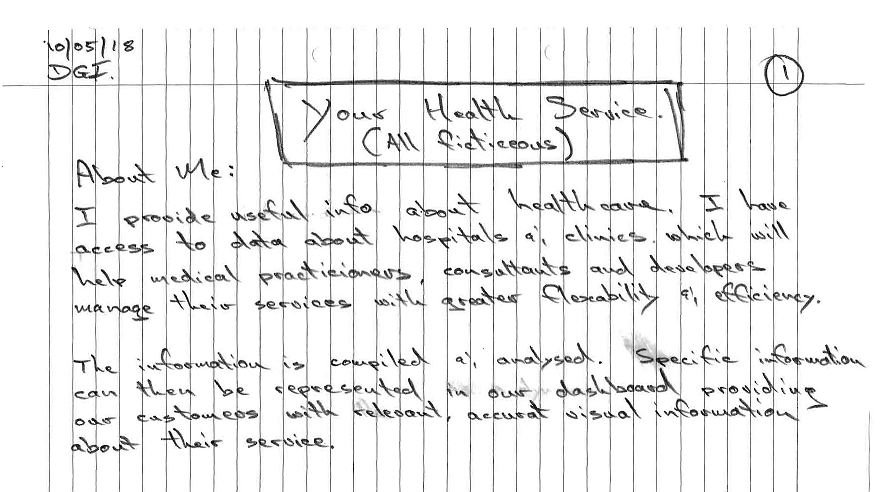 10/05/18
DGI.
1
Your Health Service.
(All ficticeous)
About Me:
I provide useful info about healthcare. I have
access to data about hospitals & clinics which will
help medical practicioners, consultants and developers
manage their services with greater flexability & efficiency.
The information is compiled & analysed. Specific information
can then be represented in our dashboard providing
our customers with relevant, accurat visual information
about their service.